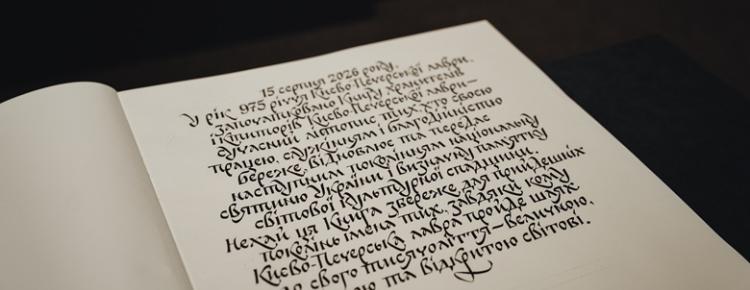 15 серпня 2026 року,
У рік 975 річчя Києво-Печерської лаври,
започатковано Книгу хранителів
і ктиторів Києво-Печерської лаври—
сучасний літопис тих, хто своєю
працею, служінням і благодійністю
береже, відновлює та передає
наступним поколінням національну
святиню України і визначну пам'ятку
світової культурної спадщини.
Нехай ця Книга збереже для прийдешніх
поколінь імена тих, завдяки кому
Києво-Печерська лавра пройде шлях
до свого тисячоліття—величною,
та відкритою світові.